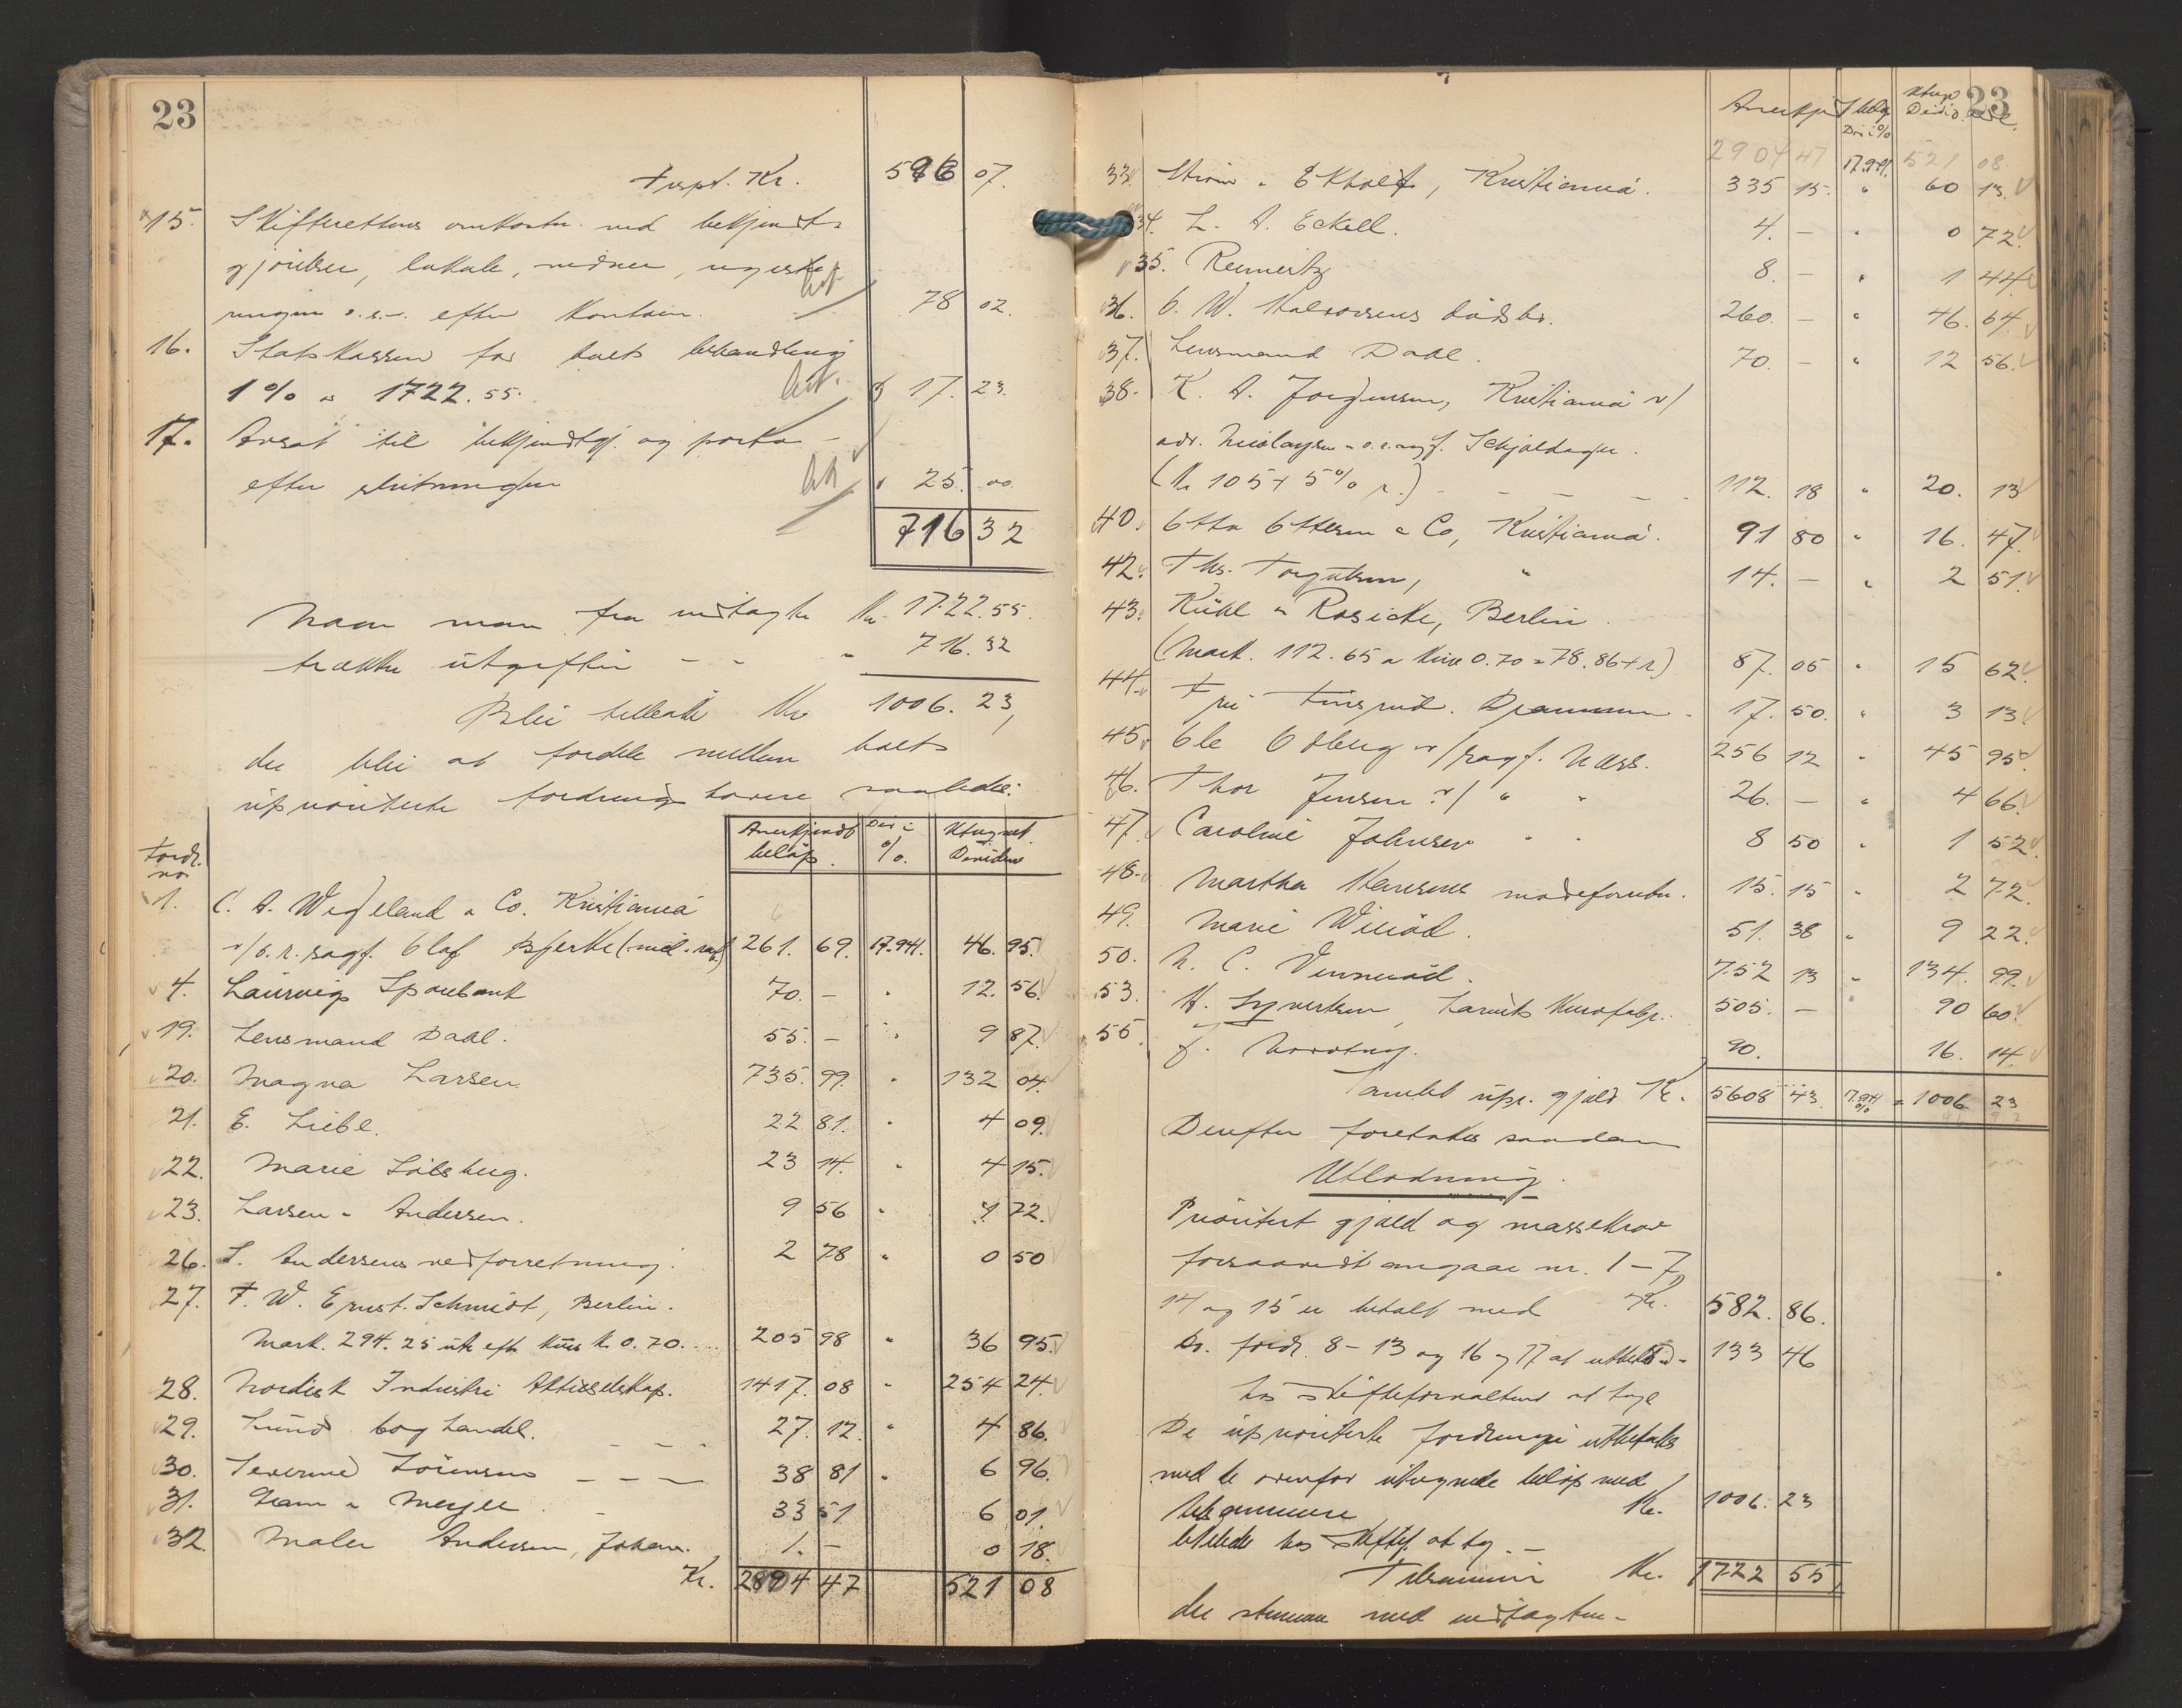 23
Trspt. Kr. 596 07.
15. Skifterettens omkostn. ved bekjendt-
gjørelser, lokale, vidner, registre-
ringen o.s.v. efter kontoen. 78 02.
16. Statskassen for boets behandling
1% av 1722.55. 17. 23.
17. Avsat til bekjendtgj. og porto
efter slutningen 25. 00
716 32
Naar man fra indtægten Kr. 1722.55.
trækker utgiften - - " 716.32
Blir tilbake Kr. 1006.23,
der blir at fordele mellem boets
upriviterte fordringshavere saaledes:
Fordr. no Anerkjendt beløp. Div i %. Utregnet Dividende
1. C. A. Wegeland & Co. Kristiania
v/o.r.sagf. Olaf Bjerke (incl. ) 261. 69. 17.941. 46. 95.
4. Laurvigs Sparebank 70. — " 12. 56.
19. Lensmand Dahl. 55. — " 9 87.
20. Magna Larsen 735. 99. " 132 04.
21. E. Liebe. 22 81. " 4 09.
22. Marie Solsberg. 23 14. " 4 15.
23. Larsen & Andersen. 9 56 " 1 72.
26. S. Andersens vedforretning. 2 78 " 0 50
27. F. W. Ernst Schmidt, Berlin.
Mark. 294.25 utr. efter kurs k. 0.70. 205 98 " 36 95.
28. Nordisk Industri Aktieselskap. 1417. 08 " 254 24.
29. Lund boghandel. 27. 12. " 4 86.
30. Severine Sørensen 38 81 " 6 96.
31. Gram & Meyer. 33 51 6 01.
32. Maler Andersen, Johan. 1. — 0 18.
Kr. 2894 47 521 08
23
Anerkjendt Utbet. Div i % Utregn Divid.
2904 47 17.941. 521 08.
33. Strøm & Ekholdt, Kristiania. 335 15. " 60 13.
34. L. A. Eckell. 4. — " 0 72.
35. Reimertz 8. — " 1 44.
36. O. W. Halvorsens dødsbo. 260. — " 46. 64.
37. Lensmand Dahl. 70. — " 12 56.
38. K. A. Jørgensen, Kristiania v/
adv. Nicolaysen & o.r.sagf. Schjoldager.
(Kr 105 + 5% r.) 112. 18 " 20. 13
40. Otto Ottersen & Co, Kristiania. 91 80 " 16. 47.
42. Ths. Torgersen, " 14. — " 2 51.
43. Kühl & Rosicke, Berlin.
(Mark. 112.65 a kurs 0.70 = 78.86 + r) 87. 05 " 15 62.
44. Fru Finsrud. Drammen. 17. 50. " 3 13.
45. Ole Odberg v/ sagf. Næss. 256 12 " 45 95.
46. Thor Jensen v/ " " 26. — " 4 66.
47. Caroline Johnsen " " 8 50 " 1 52.
48. Martha Hansens modeforretn. 15. 15 " 2 72.
49. Marie Wiliød. 51. 38 " 9 22.
50. N. C. Vennerød. 752 13 " 134. 99.
53. H. Syvertsen, Larviks 505. — " 90 60.
55. J. Nordtug. 90. 16. 14.
Samlet upr. gjeld Kr. 5608 43. 17.941 % = 1006 23
Derefter foretokes saadan
Utlodning.
Prioritert gjeld og massekrav
forsaavidt angaar nr. 1–7,
14 og 15 er betalt med Kr. 582. 86.
Do. fordr. 8–13 og 16 og 17 at utbetale - 133 46
hos skifteforvalteren at hæve
De upriviterte fordringer utbetales
med de ovenfor utregnede beløp med
tilsammen Kr. 1006. 23
likeledes hos skiftef. at hæv. —
Tilsammen Kr. 1722 55,
der stemmer med indtægten.